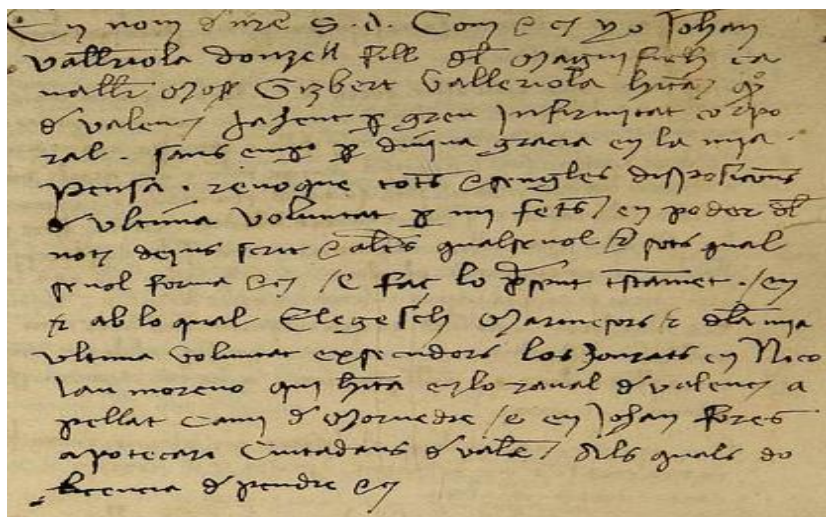 En nom d nre S. d. Com & c yo Johan
Vallriola donzell fill dl Magnifich ca
vallr Moss Gisbert Valleriola hita
d Valenc Jahent p greu Infirmitat corpo
ral. sans empo p divina gracia en la mia
pensa. revoque tots e sengles disposicions
d ultima Voluntat p mi fets / en poder dl
not dejus scrit e altes qualsevol sots qual
sevol forma & c / E faç lo psent tstament. / en
ab lo qual Elegesch Marmesors dla mia
ultima Voluntat exsecudors los honrats en Nico
lau moreno qui hita en lo raval d Valenc a
pellat Cami d Morvedre / e en Johan fores
apotecari Ciutadans d Vale / dls quals do
licencia d pendre & c